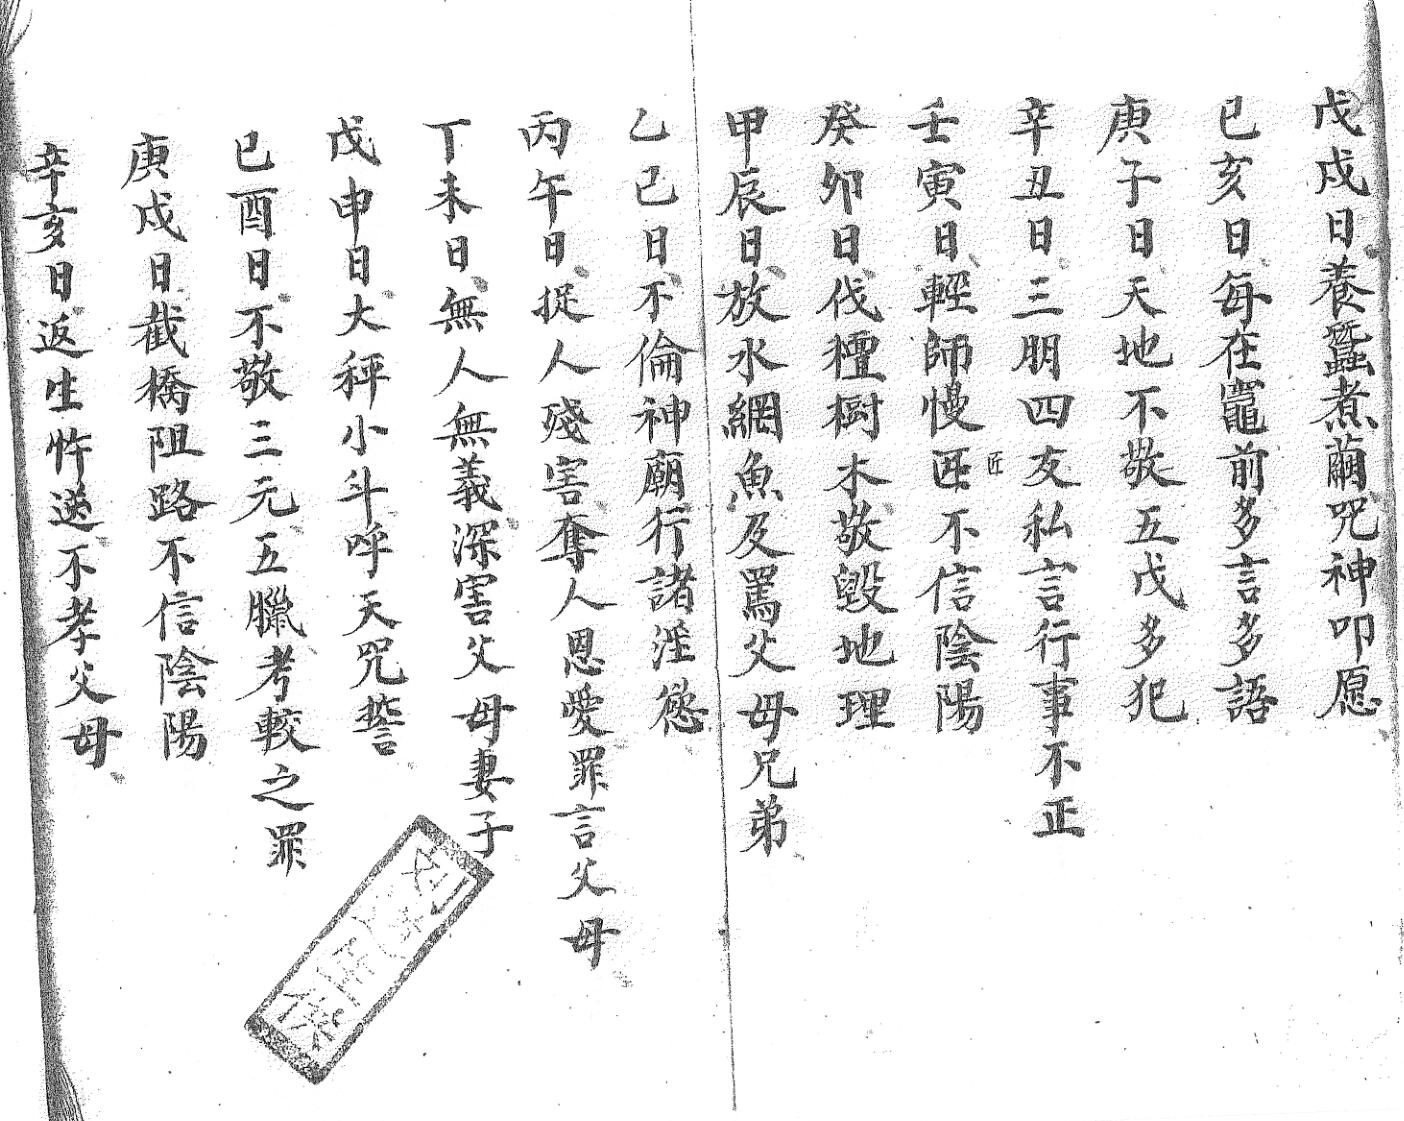 戊戌日養蚕煮繭咒神叩愿
已亥日每在竈前多言多語
庚子日天地不敬五戊多犯
辛丑日三朋四友私言行事不正
壬寅日輕師慢匠不信陰陽
匠
癸卯日伐檀樹木敬毀地理
甲辰日放水網魚及罵父母兄弟
乙已日不倫神廟行諸淫慾
丙午日捉人殘害奪人恩愛罪言父母
丁未日無人無義深害父母妻子
戊申日大秤小斗呼天咒誓
已酉日不敬三元五臘考較之罪
庚戌日截橋阻路不信陰陽
辛亥日返生忤送不孝父母